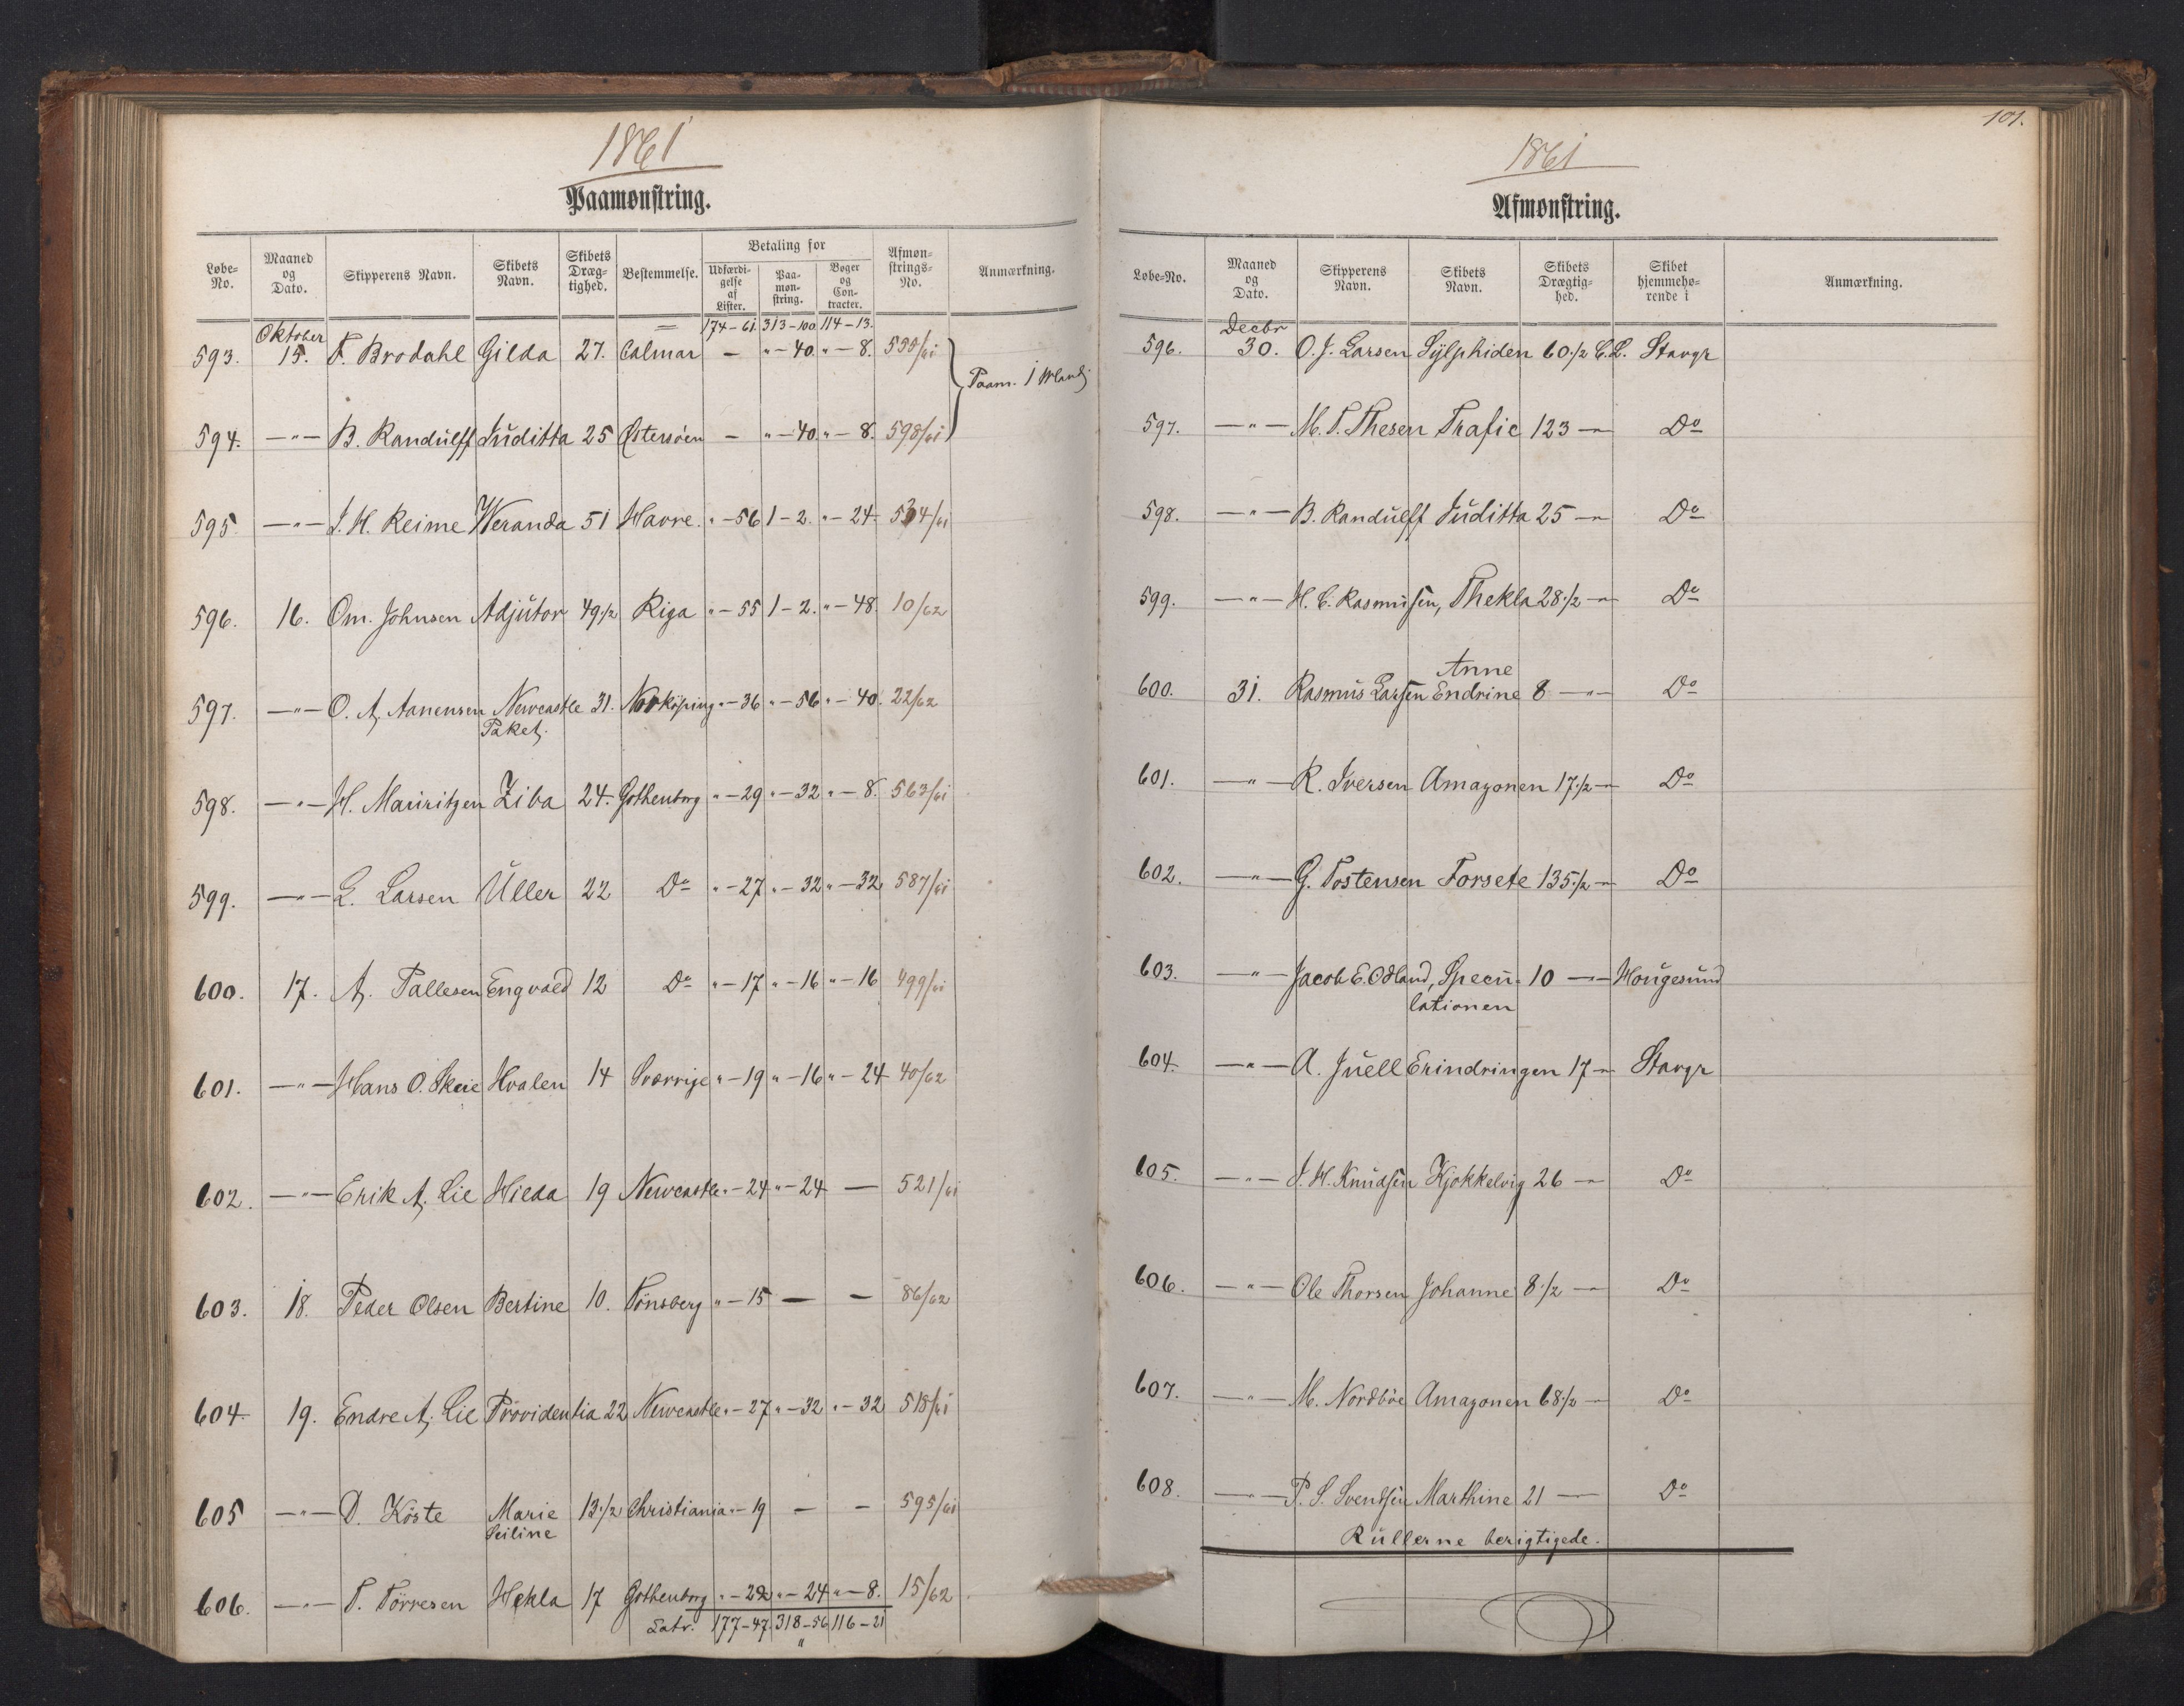 1861
Paamønstring.
Løbe-No. Maaned og Dato. Skipperens Navn. Skibets Navn. Skibets Dræg-tighed. Bestemmelse. Betaling for Udfærdi-gelse af Lister. Paa-møn-string. Bøger og Con-tracter. Afmøn-strings-No. Anmærkning.
174-61. 313-100 114-13.
Oktober
593. 15. F. Brodahl Gilda 27. Calmar — " - 40. " - 8.
Paam. i
594. —"— B. Randulff Juditta 25 Østersøen — " - 40. " - 8. 598/61
595. —"— J. H. Reime Weranda 51 Havre. " - 56 1 - 2. " - 24.
596. 16. Om. Johnsen Adjutor 49 1/2 Riga " - 55 1 - 2. " - 48. 10/62
597. —"— O. A. Aanensen Newcastle 31. Norköping " - 36 " - 56 " - 40. 22/62
Paket.
598. —"— H. Mauritzen Ziba 24. Gothenborg " - 29 " - 32 " - 8. 563/61
599. —"— L. Larsen Uller 22 Do " - 27 " - 32 " - 32. 587/61
600. 17. A. Pallesen Engvald 12 Do " - 17 " - 16 " - 16 499/61
601. —"— Hans O. Skeie Hvalen 14 Sverrige " - 19 " - 16 " - 24 40/62
602. —"— Erik A. Lie Hilda 19 Newcastle " - 24 " - 24 — 521/61
603. 18. Peder Olsen Bertine 10. Tönsberg " - 15 — — 86/62
604. 19. Endre A. Lie Providentia 22 Newcastle " - 27 " - 32 " - 32 518/61
605 —"— D. Köste Marie 13 1/2 Christiania " - 19 — — 595/61
Seiline
606. —"— T. Törresen Hekla 17 Gothenborg " - 22 " - 24 " - 8. 15/62
Latr. 177-47. 318-56 116-21
101.
1861
Afmønstring.
Løbe-No. Maaned og Dato. Skipperens Navn. Skibets Navn. Skibets Drægtig-hed. Skibet hjemmehø-rende i Anmærkning.
Decbr
596. 30. O. J. Larsen Sylphiden 60 1/2 C.L. Stavgr
597. —"— M. T. Thesen Trafic 123 —"— Do
598. —"— B. Randulff Juditta 25 —"— Do
599. —"— H. C. Rasmussen, Thekla 28 1/2 —"— Do
Anne
600. 31. Rasmus Larsen Endrine 8 —"— Do
601. —"— R. Iversen Amazonen 17 1/2 —"— Do
602. —"— G. Tostensen Forsete 135 1/2 —"— Do
603. —"— Jacob E. Odland, Specu- 10 —"— Hougesund
lationen
604. —"— A. Juell Erindringen 17 —"— Stavgr
605. —"— J. H. Knudsen Kjokkelvig 26 —"— Do
606. —"— Ole Thorsen Johanne 8 1/2 —"— Do
607. —"— M. Nordböe Amazonen 68 1/2 —"— Do
608. —"— P. S. Svendsen Marthine 21 — Do
Rullerne berigtigede.